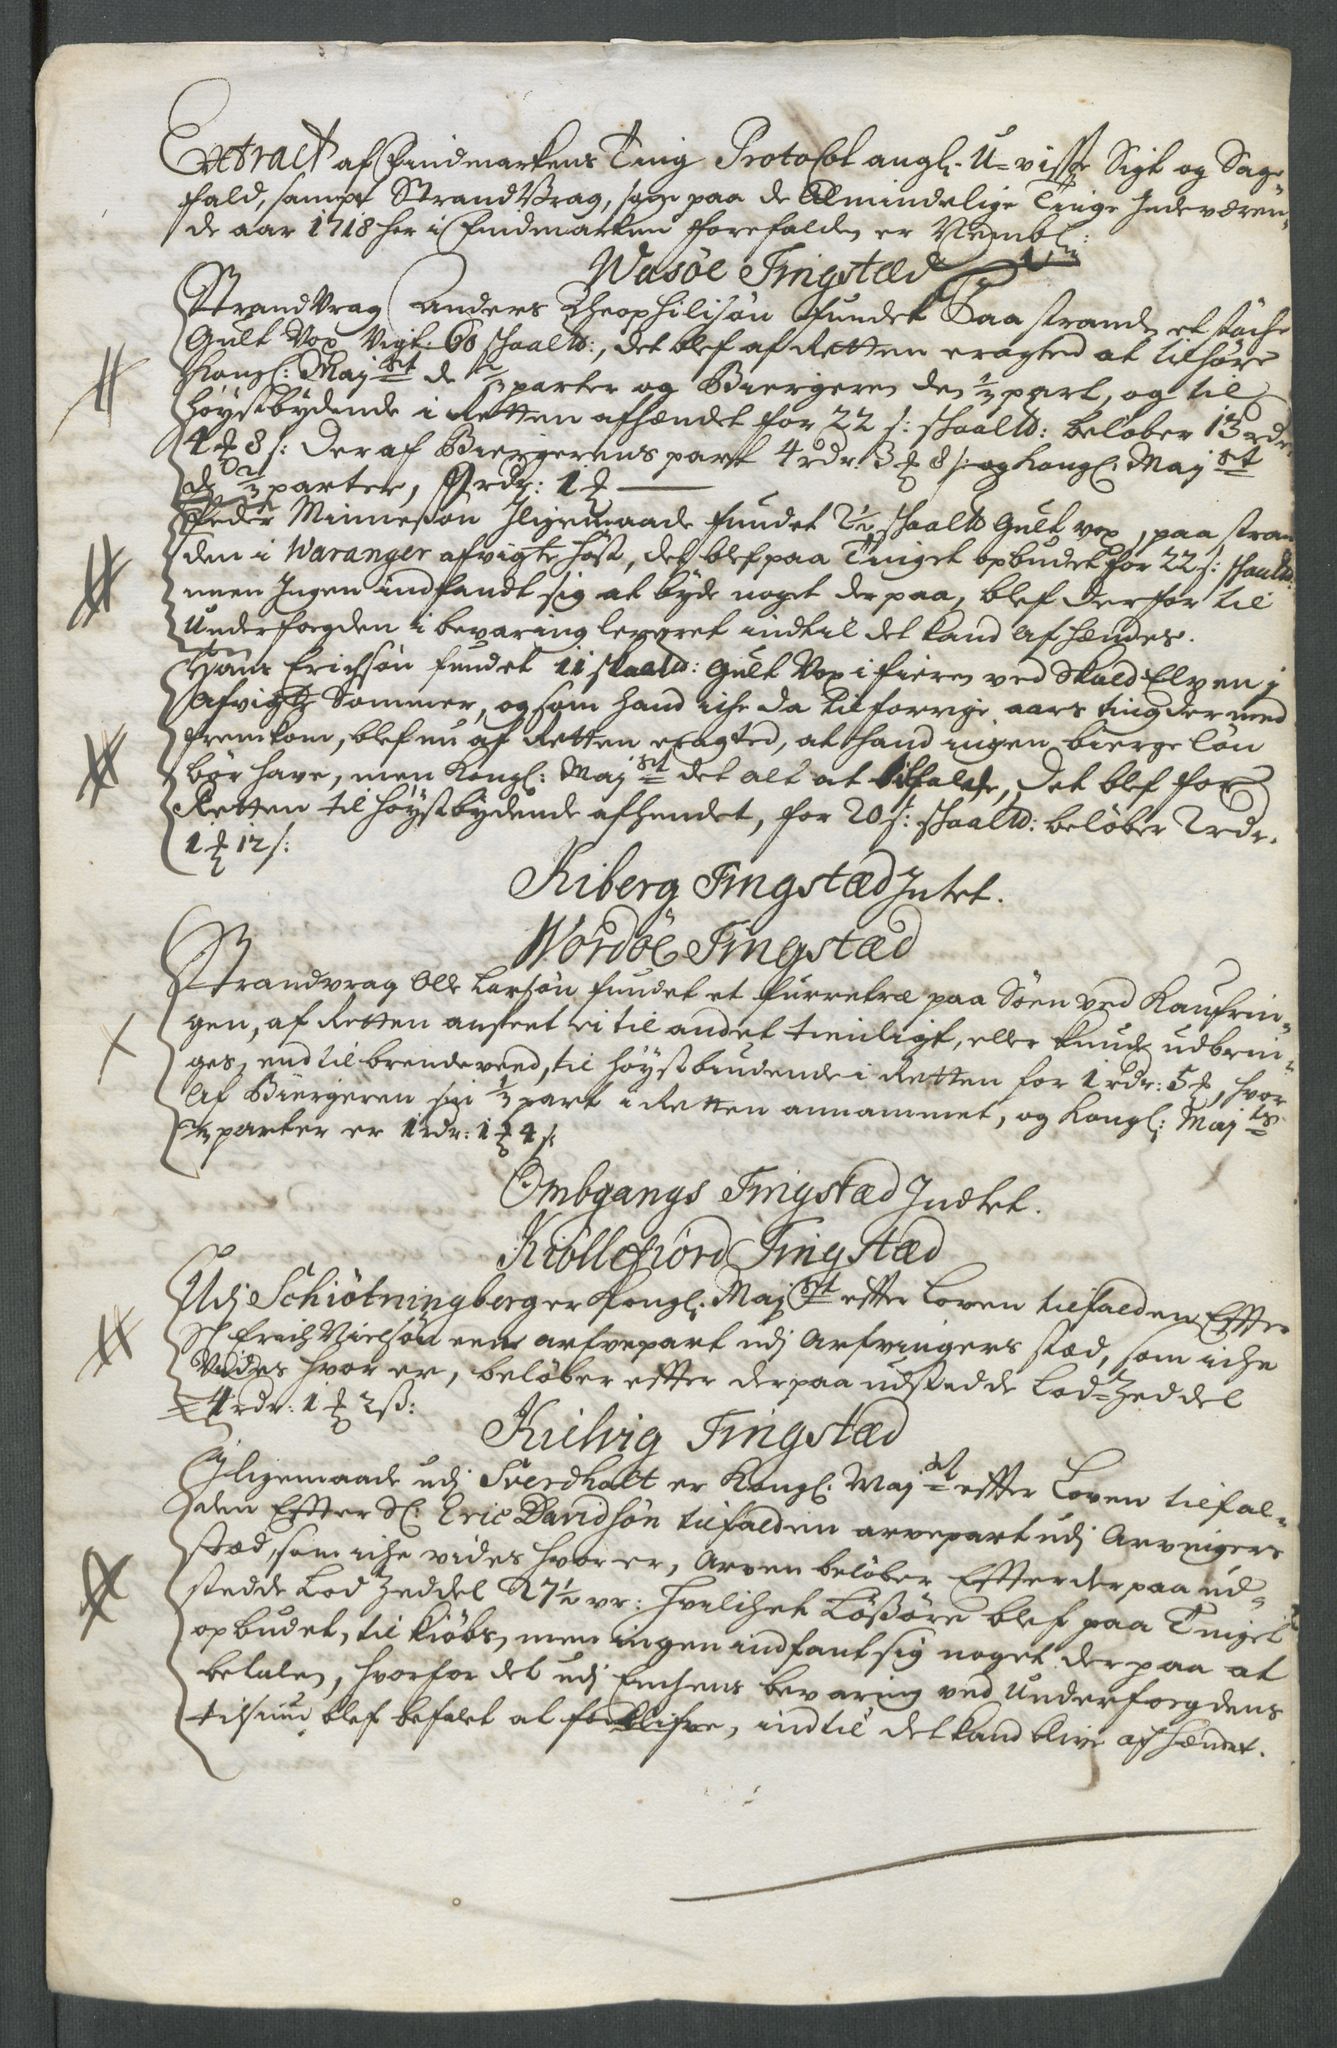 Extract af Findmarkens Ting Protocol angl: U-visse Sigt og Sage-
fald, sampt StrandVrag, som paa de Almindelige Tinge Indeværen-
de aar 1718 her i Findmarken forefalden er Nembl:
Wasöe Tingstæd
StrandVrag Anders Theophilisön fundet Paa stranden et støche
Gult Vox Vigt: 60 skaalld:, det blef af Retten eragted at tilhøre
Kongl: Majst de 2/3 parter og Biergeren den 1/3 part, og til
høystbydende i Retten afhændet for 22 s: skaalld: beløber 13 rdr:
4 ℔ 8 s: deraf Biergerens part 4 rdr: 3 ℔ 8 s: og Kongl: Majst
de 2/3 parter, 9 rdr: 1 ℔
Peder Minnesøn Iligemaade fundet 2 1/2 skaalld Gult vox, paa stran
den i Waranger afvigte høst, det blef paa Tinget opbudet for 22 s: skaalld:
men Ingen indfandt sig at byde noget derpaa, blef derfor til
Underfogden i bevaring leveret indtil det kand afhændes.
Hans Erichsøn fundet 11 skaalld: Gult Vox i fieren ved Skald Elven i
Afvigte Sommer, og som hand iche da til forrige aars ting dermed
fremkom, blef nu af Retten eragted, at hand ingen bierge løn
bør have, men Kongl: Majst det alt at tilfalde, det blef for
Retten til høystbydende afhendet, for 20 s: skaalld: beløber 2 rdr:
1 ℔ 12 s:
Kiberg Tingstæd Intet.
Wordöe Tingstæd
Strandvrag Ole Larsøn fundet et furretræ paa Søen ved Haufnin-
gen, af Retten anseet ei til andet tienligt, eller kunde udbrin-
ges, end til brendeveed, til høystbiudende i Retten for 1 rdr: 5 ℔, hvor
Af Biergeren sin 1/3 part i Retten annammet, og Kongl: Majts
2/3 parter er 1 rdr: 1 ℔ 4 s:
Ombgangs Tingstæd Indtet.
Kiöllefiord Tingstæd
Udj Schiötningberg er Kongl: Majst efter Loven tilfalden Efter
Sl Erich Nielsøn een arfvepart udj Arfvingers stæd, som iche
Vides hvor er, beløber efter derpaa udstædde Lod-Zeddel
4 rdr: 1 ℔ 2 ß:
Kielvig Tingstæd
Iligemaade udj Sverdholt er Kongl: Majst efter Loven tilfal-
den Efter Sl: Eric Davidsøn tilfalden arvepart udj Arvingers
stæd, som iche vides hvor er, Arven beløber Efter derpaa ud-
stedde Lod Zeddel 27 1/2 vr: hvilchet Løßøre blef paa Tinget
opbudet, til kiøbs, men ingen indfant sig noget derpaa at
betalen, hvorfor det udj Enchens bevaring ved Underfogdens
tilsiun blef befalet at forblifve, indtil det kand blive afhændet.